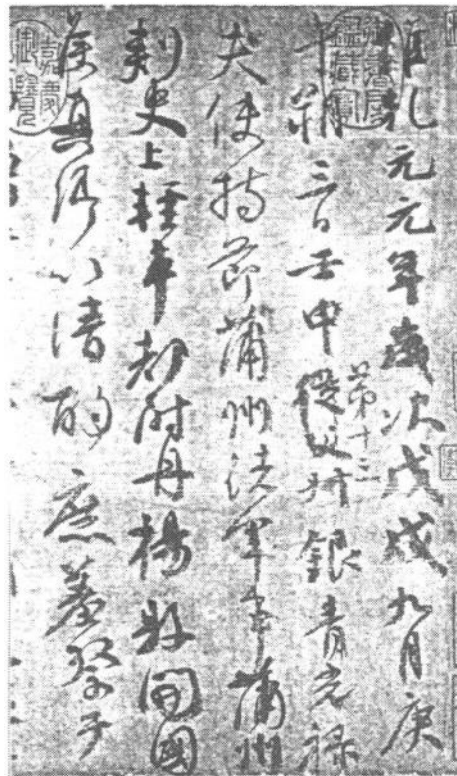 維乾元元年歲次戊戌九月庚
午朔三日壬申從父叔銀青光祿
第十三
夫使持節蒲州諸軍事蒲州
刺史上輕車都尉丹楊縣開國
侯真卿以清酌庶羞祭于
嘉慶御覽